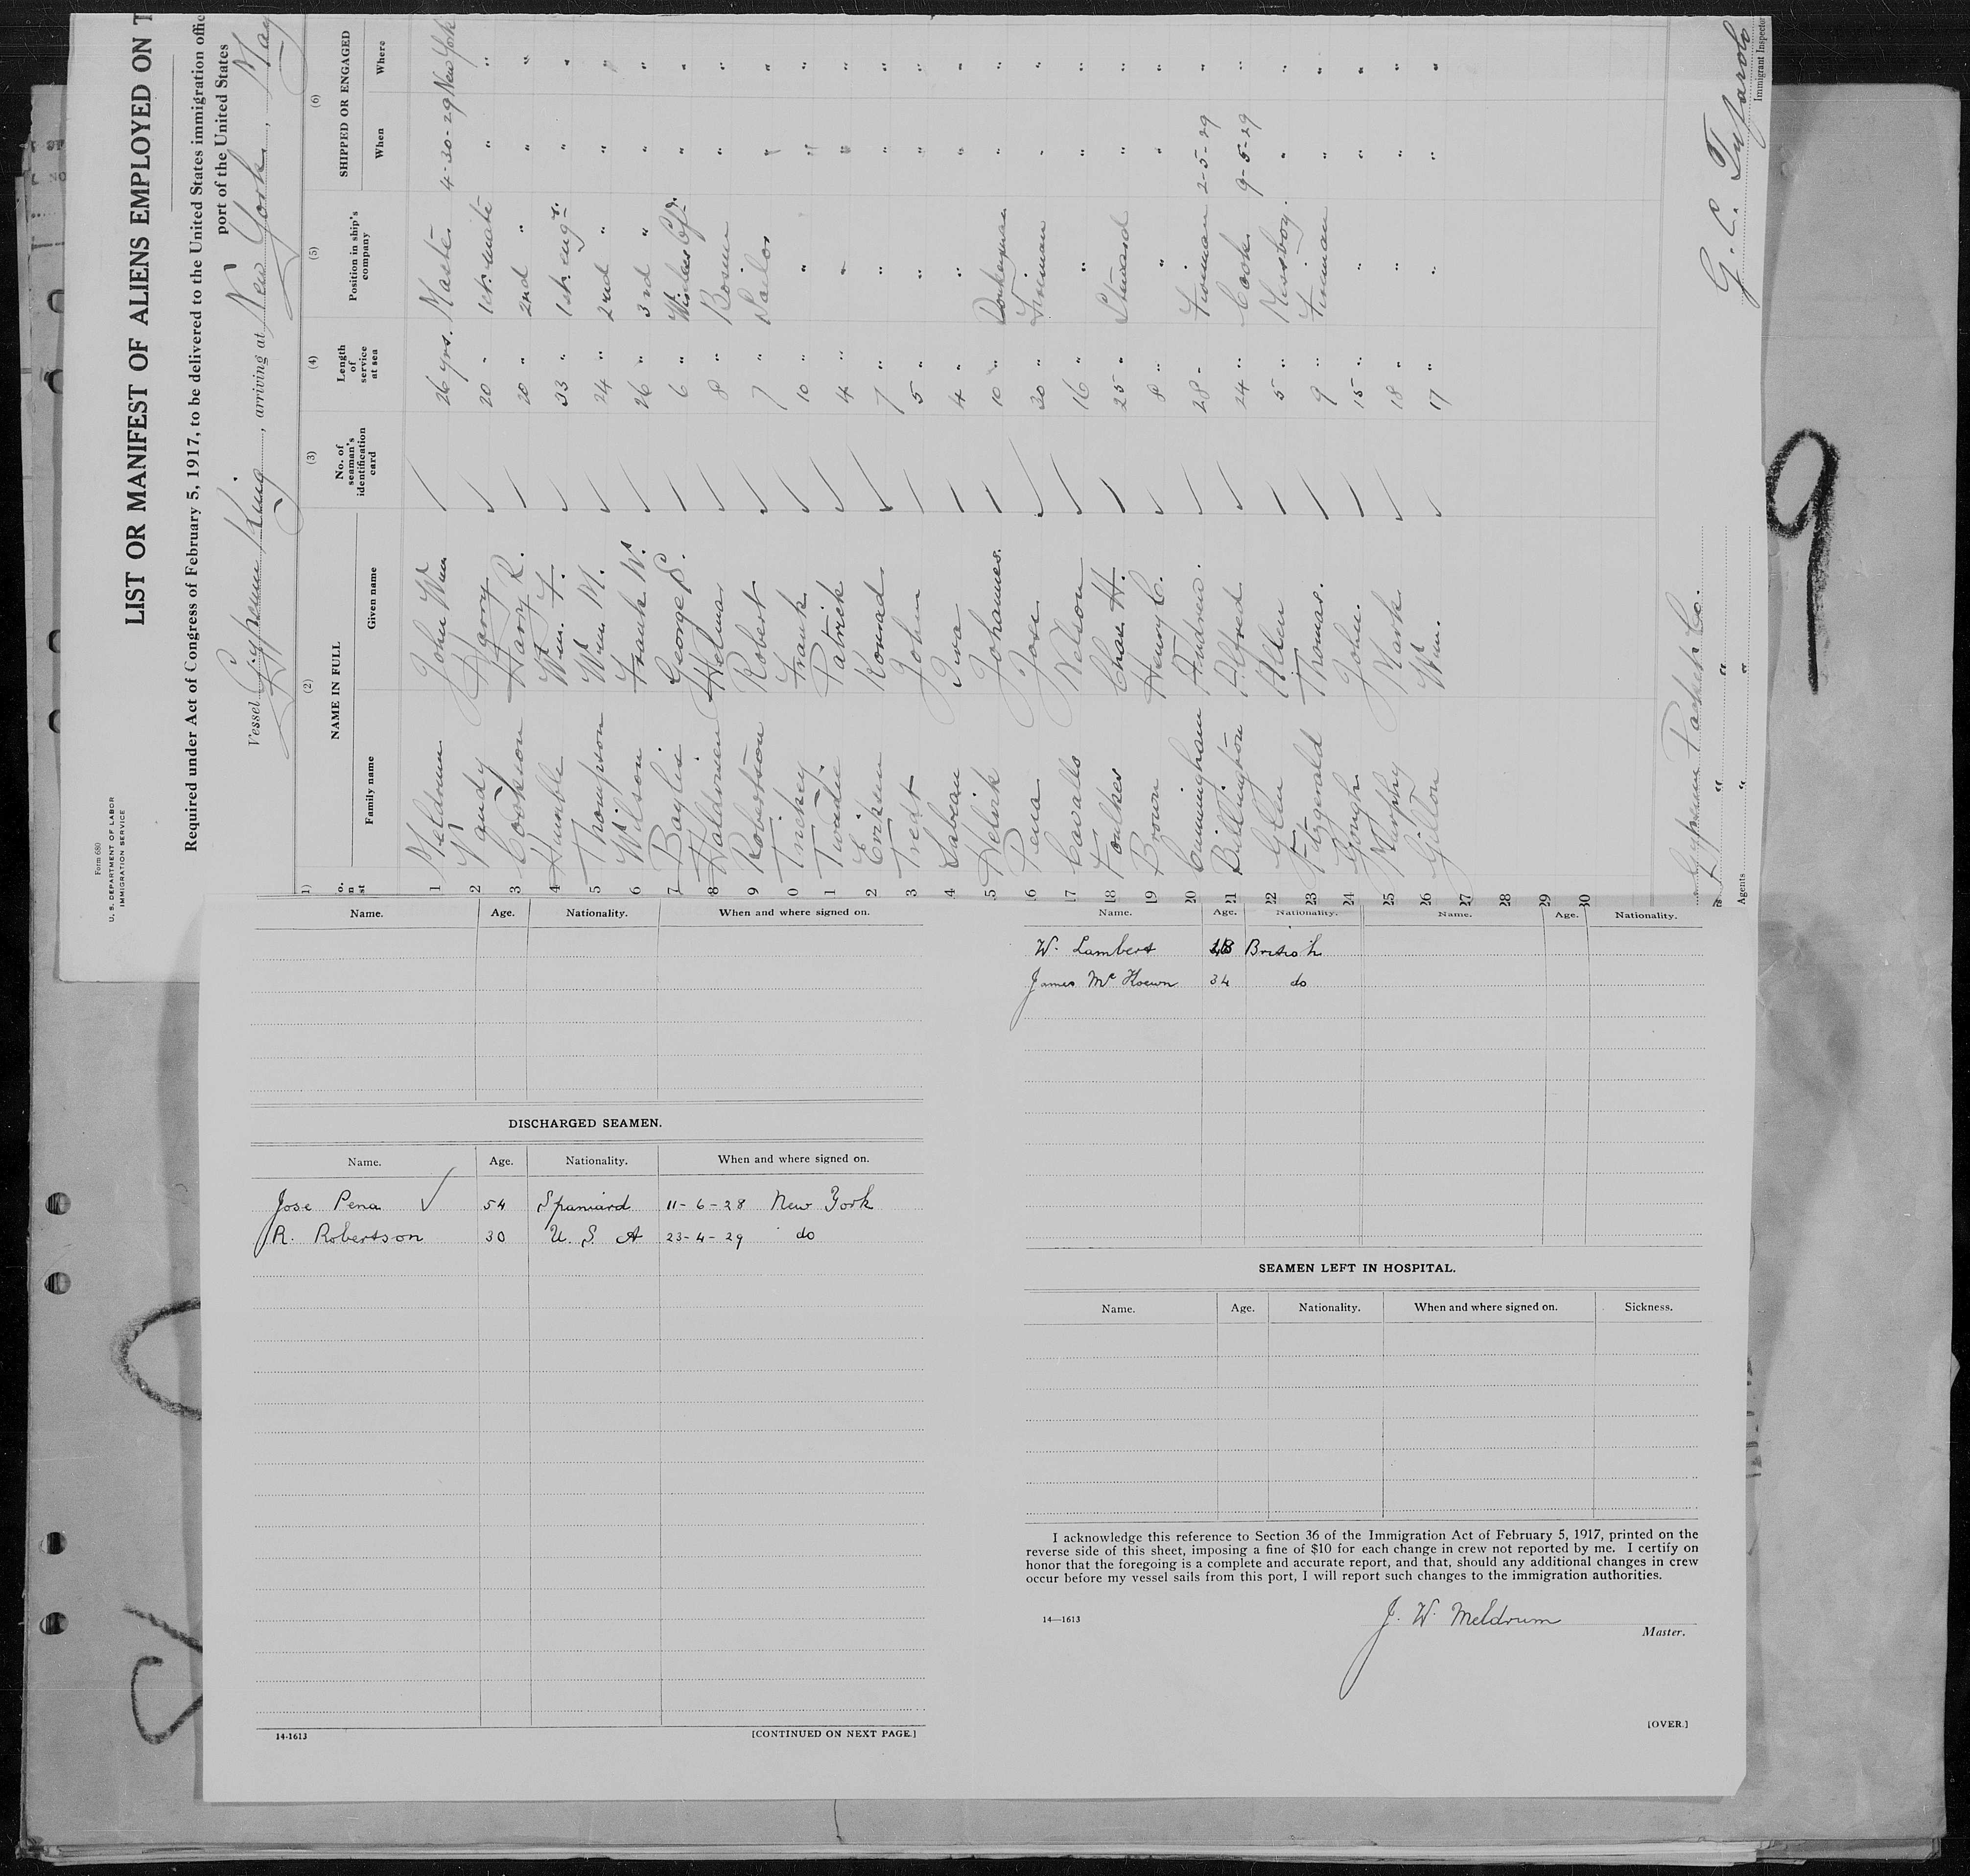 Form 680
U. S. DEPARTMENT OF LABOR
IMMIGRATION SERVICE
LIST OR MANIFEST OF ALIENS EMPLOYED ON T
Required under Act of Congress of February 5, 1917, to be delivered to the United States immigration offic
port of the United States
Vessel Gypsum King, arriving at New York, May
(2) (3) (4) (5) (6)
NAME IN FULL No. of seaman's identification card Length of service at sea Position in ship's company SHIPPED OR ENGAGED
Family name Given name When Where
1 Meldrum John Wm 26 yrs. Master 4-30-29 New York
2 Harry 20 " 1st mate " "
3 Cookson Harry R. 20 " 2nd " " "
4 Humble Wm. F. 33 " 1st eng'r. " "
5 Thompson Wm. M. 24 " 2nd " " "
6 Wilson Frank W. 26 " 3rd " " "
7 Baylie George S. 6 " " "
8 Haldorsen Helmar 8 " Bosun " "
9 Robertson Robert 7 " Sailor " "
0 Frank 10 " " " "
1 Patrick 4 " " " "
2 Konrad 7 " " " "
3 John 5 " " " "
4 4 " " " "
5 Johannes. 10 " Donkeyman " "
16 Pena Jose 30 " Fireman " "
17 Cavallo Nelson 16 " " " "
18 Foulkes Chas. H. 25 " Steward " "
19 Brown Henry C. 8 " " " "
20 Cunningham Andrew. 28 " Fireman 2-5-29 "
21 Billington Alfred 24 " Cook 9-5-29 "
22 Glen Allen 5 " Messboy. " "
23 Fitzgerald Thomas. 9 " Fireman " "
24 Gough John. 15 " " " "
25 Murphy Mark 18 " " " "
26 Gillon Wm. 17 " " " "
27
28
29
30
Gypsum Packet Co.
Agents " "
G. C.
Immigrant Inspector
9
Name. Age. Nationality. When and where signed on.
DISCHARGED SEAMEN.
Name. Age. Nationality. When and where signed on.
Jose Pena ✓ 54 Spaniard 11-6-28 New York
R. Robertson 30 U. S. A 23-4-29 do
14-1613 [CONTINUED ON NEXT PAGE.]
Name. Age. Nationality. Name. Age. Nationality.
W. Lambert British
James 34 do
SEAMEN LEFT IN HOSPITAL.
Name. Age. Nationality. When and where signed on. Sickness.
I acknowledge this reference to Section 36 of the Immigration Act of February 5, 1917, printed on the
reverse side of this sheet, imposing a fine of $10 for each change in crew not reported by me. I certify on
honor that the foregoing is a complete and accurate report, and that, should any additional changes in crew
occur before my vessel sails from this port, I will report such changes to the immigration authorities.
14—1613
J. W. Meldrum
Master.
[OVER.]